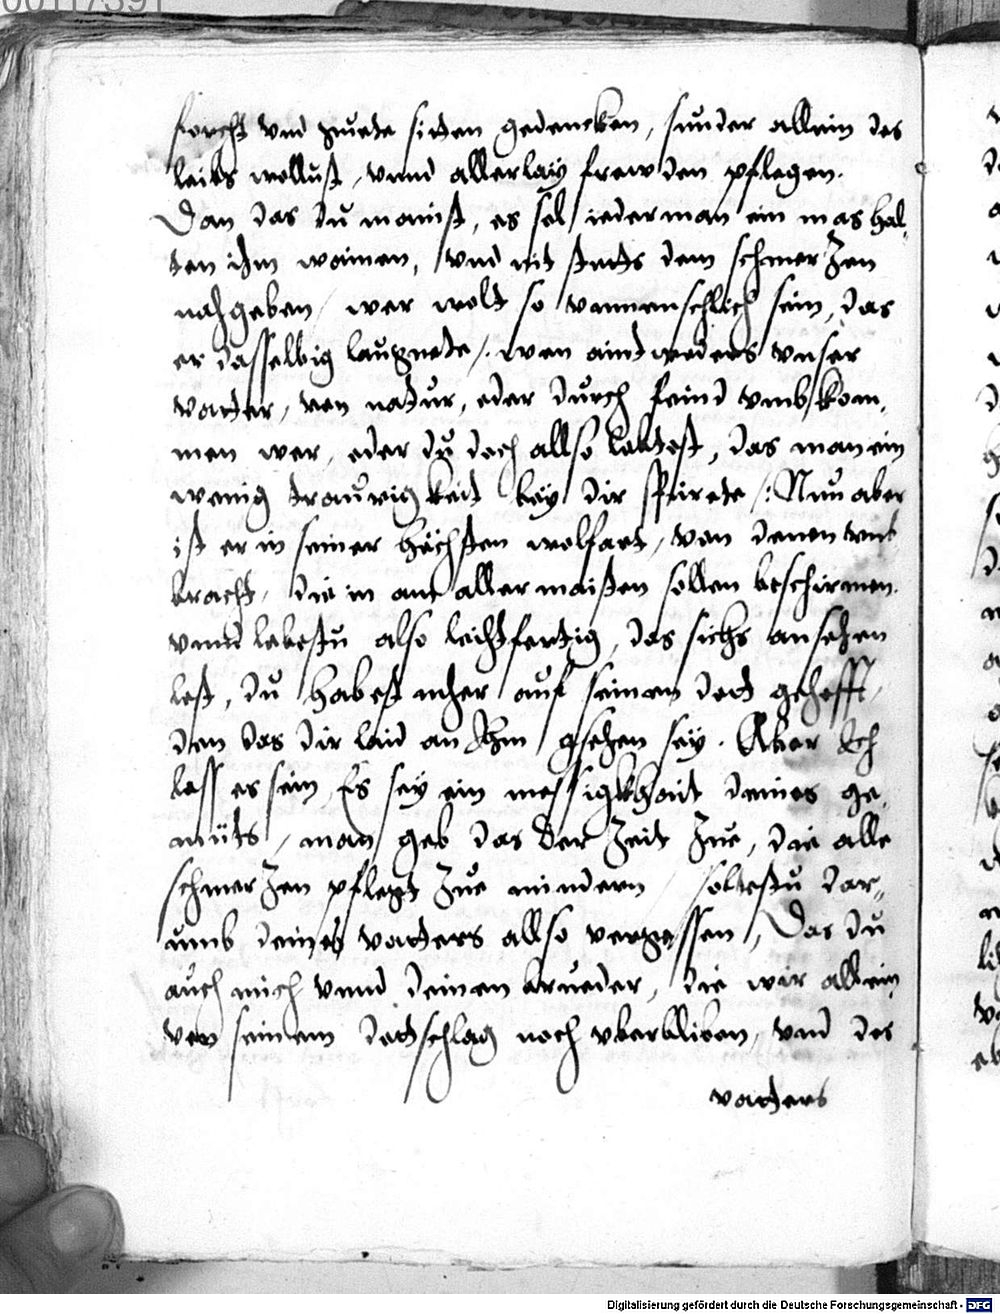 00117391
forcht vnd guete siten gedencken, sunder allein des
leibs wollust, vnnd allerlay frewden pflegen.
Dan das du mainst, es sol iederman ein mas hal-
ten ihm wainen, vnd nit stetts dem schmerzen
nahgeben, wer wolt so vnmenschlich sein, das
er dasselbig laugnete /. wen aintweders vnser
vatter, von natur, oder durch feind vmbkom-
men wer, oder du doch allso lebtest, das man ein
wenig traurigkeit bey dir spirete /: Nun aber
ist er in seiner höchsten wolfart, von denen vmb
bracht, die in am aller maisten sollen beschirmen.
vnnd lebestu also leichtfertig, das sichs ansehen
lest, du habest mher auf seinen dott gehofft,
den das dir laid an Ihm gsehen sey. Aber Ich
lass es sein, Es sey ein messigkhait deines ge-
müts, man geb das der Zeit Zue, die alle
schmerzen pflegt Zue mindern, soltestu dar-
umb deines vatters allso vergessen, Das du
auch mich vnnd deinen brueder, die wir allein
von seinem dottschlag noch vberbliben, vnd des
vatters
Digitalisierung gefördert durch die Deutsche Forschungsgemeinschaft - DFG